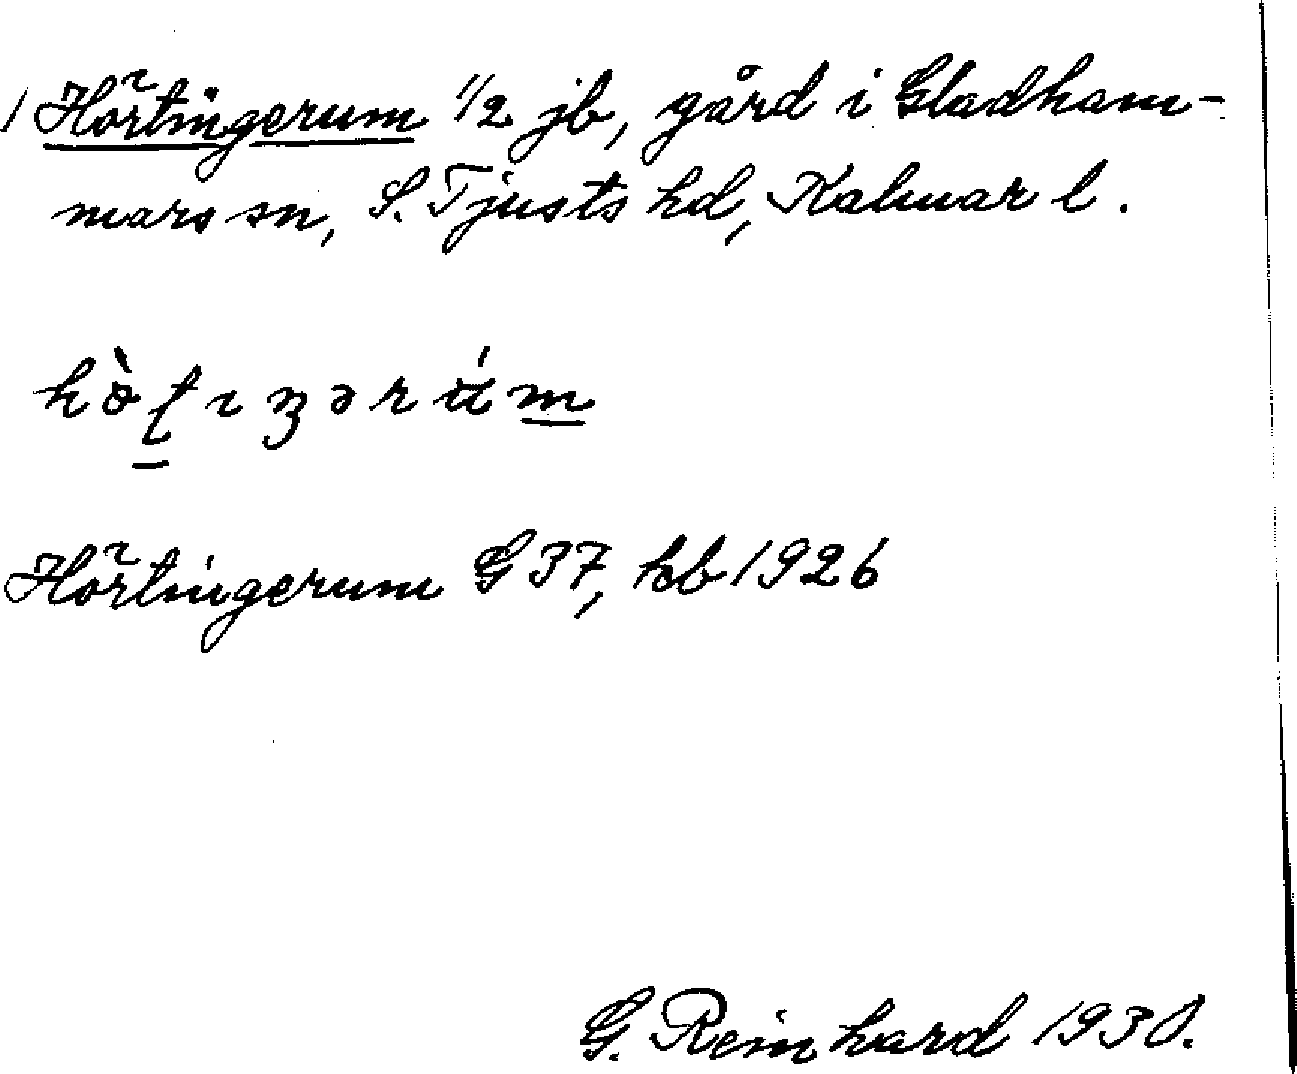 / Hörtingerum 1/2 jb, gård i Gladham-
mars sn, S. Tjusts hd, Kalmar l.
Hörtingerum G 37, kb 1926
G. Reinhard 1930.